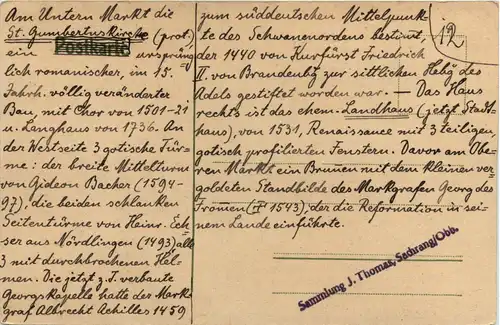 Am Untern Markt die
St. Gumbertuskirche (prot.)
Postkarte
ein ursprüng
lich romanischer, im 15.
Jahrh. völlig veränderter
Bau, mit Chor von 1501-21
u. Langhaus von 1736. An
der Westseite 3 gotische Tür-
me: der breite Mittelturm
von Gideon Bacher (1594-
97), die beiden schlanken
Seitentürme von Heinr. Ech-
ser aus Nördlingen (1493) alle
3 mit durchbrochenen Hel-
men. Die jetzt z. T. verbaute
Georgskapelle hatte der Mark
graf Albrecht Achilles 1459
zum süddeutschen Mittelpunk-
te des Schwanenordens bestimt,
der 1440 von Kurfürst Friedrich
II. von Brandenbg zur sittlichen Hebg des
Adels gestiftet worden war. — Das Haus
rechts ist das ehem. Landhaus (jetzt Stadt
haus), von 1531, Renaissance mit 3 teiligen
gotisch profilierten Fenstern. Davor am Obe-
ren Markt ein Brunnen mit dem kleinen ver-
goldeten Standbilde des Markgrafen Georg des
Fromen († 1543), der die Reformation in sei-
nem Lande einführte.
12
Sammlung J. Thomas, Sachrang/Obb.